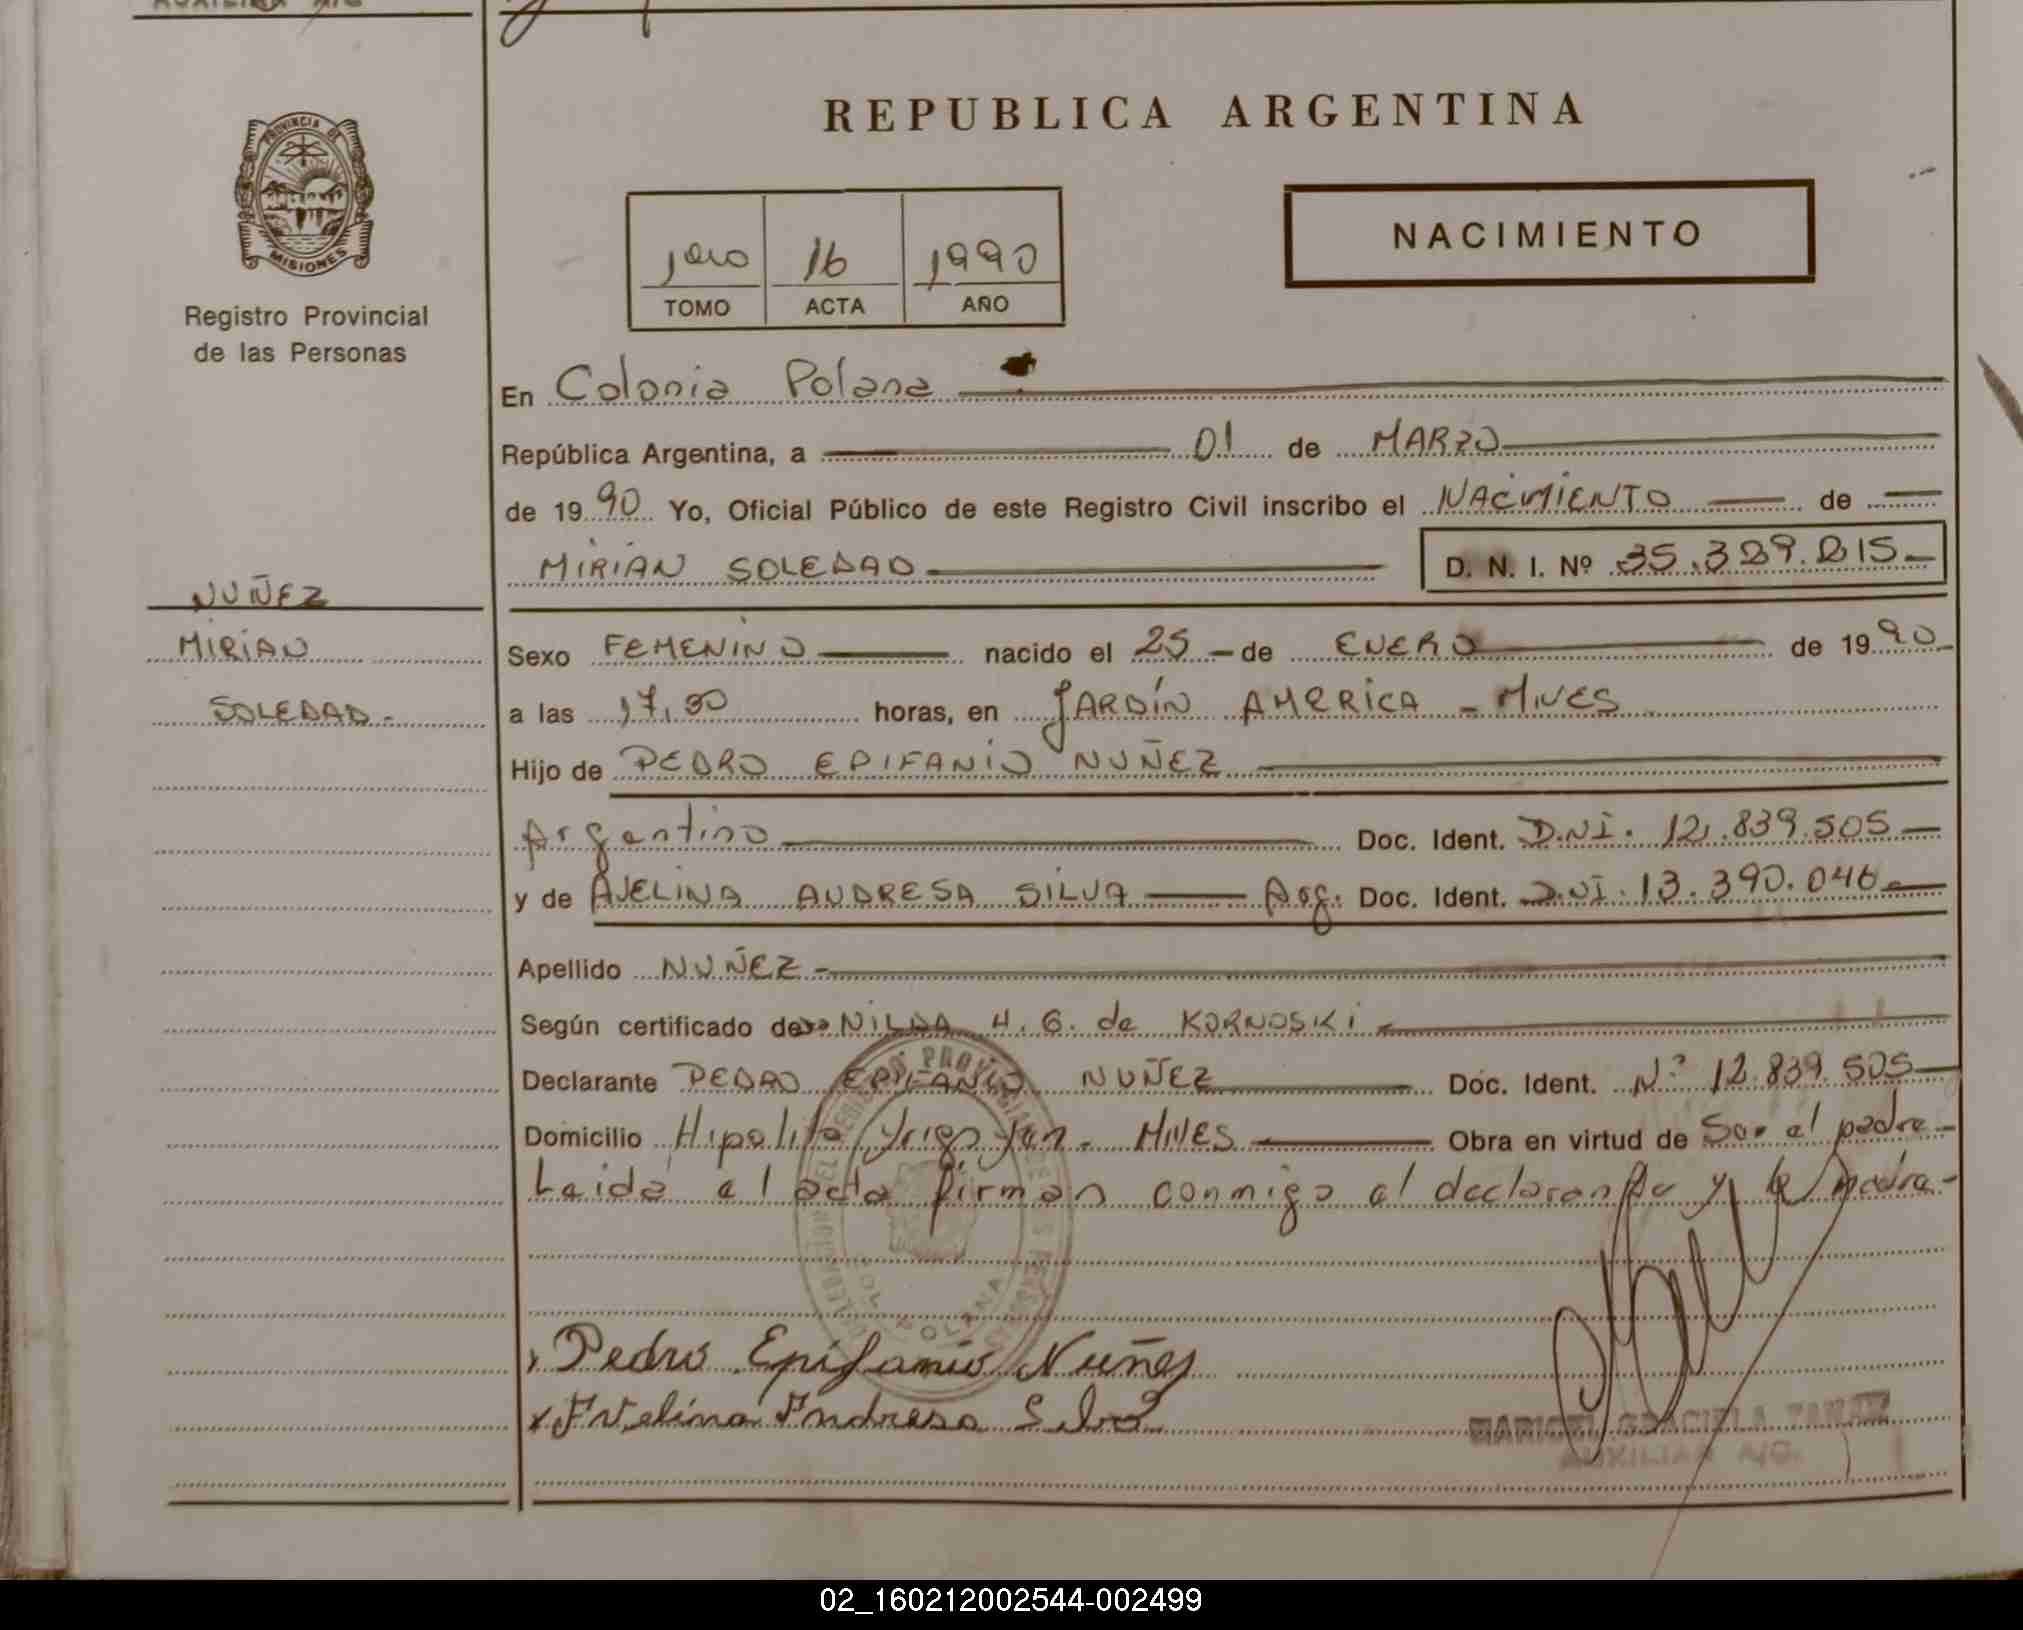 AUXILIAR A/C
REPUBLICA ARGENTINA
PROVINCIA DE
MISIONES
Registro Provincial
de las Personas
1ero 16 1990
TOMO ACTA AÑO
NACIMIENTO
En Colonia Polana
República Argentina, a 01 de MARZO
de 1990 Yo, Oficial Público de este Registro Civil inscribo el NACIMIENTO de
MIRIAN SOLEDAD D. N. I. Nº 35.329.215
NUÑEZ
MIRIAN
SOLEDAD.-
Sexo FEMENINO nacido el 25 de ENERO de 1990
a las 17,30 horas, en JARDÍN AMERICA - MNES
Hijo de PEDRO EPIFANIO NUÑEZ
Argentino Doc. Ident. D.N.I. 12.839.505
y de AVELINA ANDRESA SILVA Arg. Doc. Ident. D.N.I. 13.390.046
Apellido NUÑEZ
Según certificado de NILDA H. G. de KORNOSKI
Declarante PEDRO EPIFANIO NUÑEZ Doc. Ident. Nº 12.839.505
Domicilio Hipolito Yrigoyen - MNES Obra en virtud de Ser el padre
Leida el acta firman conmigo el declarante y la madre
Pedro Epifanio Nuñes
x Avelina Andresa Silva
MARICEL GRACIELA
AUXILIAR A/C.
COL. POLANA
02_160212002544-002499